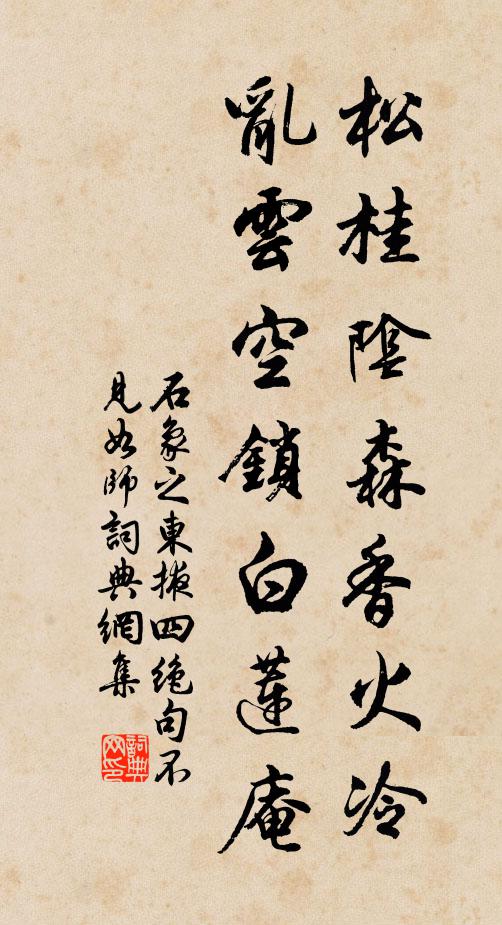 松桂陰森香火冷
亂雲空鎖白蓮庵
石象之東掖四絶句不
見如師詞典網集
詞典網印